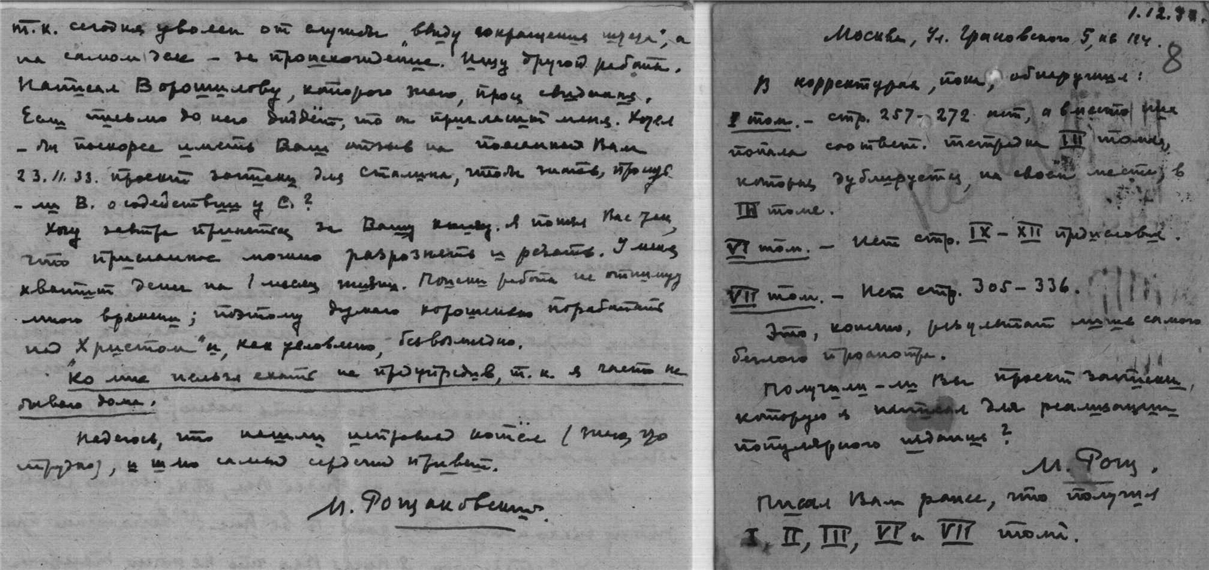 т.к. сегодня уволен от службы "ввиду сокращения штата", а
на самом деле – за происхождение. Ищу другой работы.
Написал Ворошилову, которого знаю, прося свидания.
Если письмо до него дойдёт, то он пригласит меня. Хотел
– бы поскорее иметь Ваш отзыв на посланный Вам
23.11.33. проект записки для Сталина, чтобы знать, прошу
– ли В. о содействии у С.?
Хочу завтра приняться за Вашу книгу. Я понял Вас так,
что присланное можно разрознять и резать. У меня
хватит денег на 1 месяц жизни. Поиски работы не отнимут
много времени; поэтому думаю хорошенько поработать
над "Христом" и, как условлено, безвозмездно.
Ко мне нельзя ехать не предупредив, т.к. я часто не
бываю дома.
Надеюсь, что нашли исправный котёл (знаю, что
трудно), и шлю самый сердечный привет.
М. Рощаковский.
1.12.33.
Москва, Ул. Грановского 5, кв 114.
8
В корректурах, пока, обнаружил:
I том. – стр. 257–272 нет, а вместо них
попала соответ. тетрадка III тома,
которая дублируется, на своём месте, в
III томе.
VI том. – Нет стр. IX – XII предисловия.
VII том. – Нет стр. 305–336.
Это, конечно, результат лишь самого
беглого просмотра.
Получили – ли Вы проект записки,
которую я написал для реализации
популярного издания?
М. Рощ.
Писал Вам ранее, что получил
I, II, III, VI и VII томы.